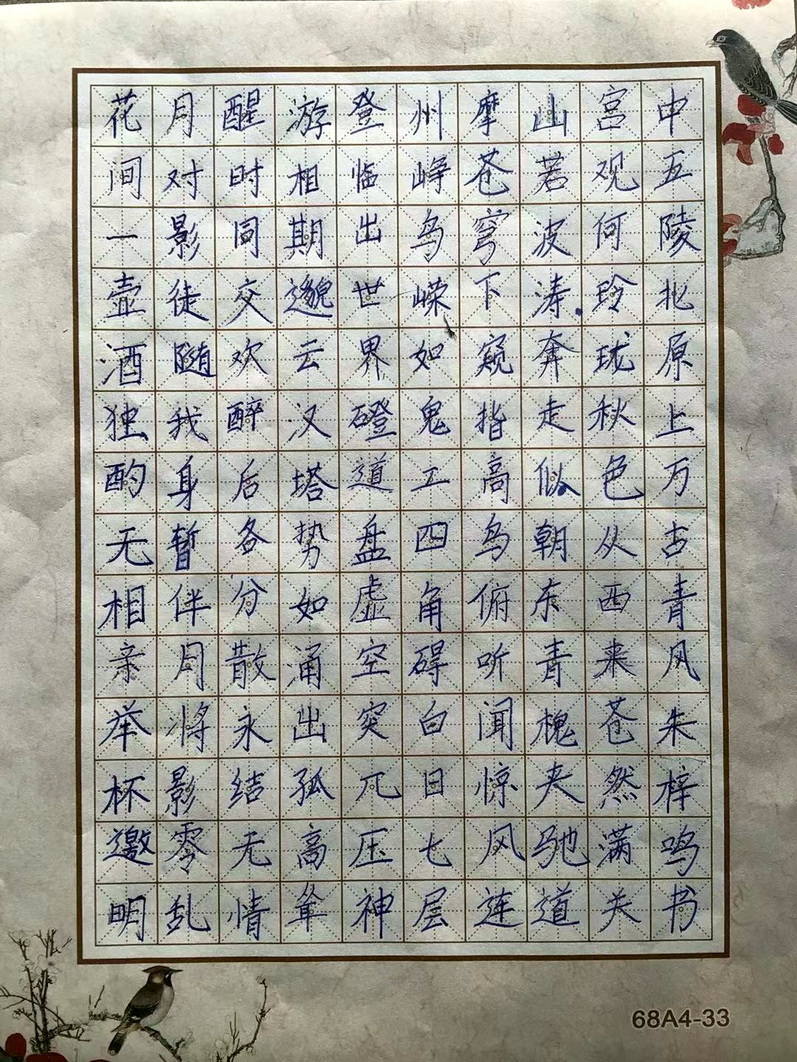 花间一壶酒独酌无相亲举杯邀明
月对影徒随我身暂伴月将影零乱
醒时同交欢醉后各分散永结无情
游相期邈云汉塔势如涌出孤高耸
登临出世界磴道盘虚空突兀压神
州峥鸟嵘如鬼工四角碍白日七层
摩苍穹下窥指高鸟俯听闻惊风连
山若波涛奔走似朝东青槐夹驰道
宫观何玲珑秋色从西来苍然满关
中五陵北原上万古青风朱梓鸣书
68A4-33